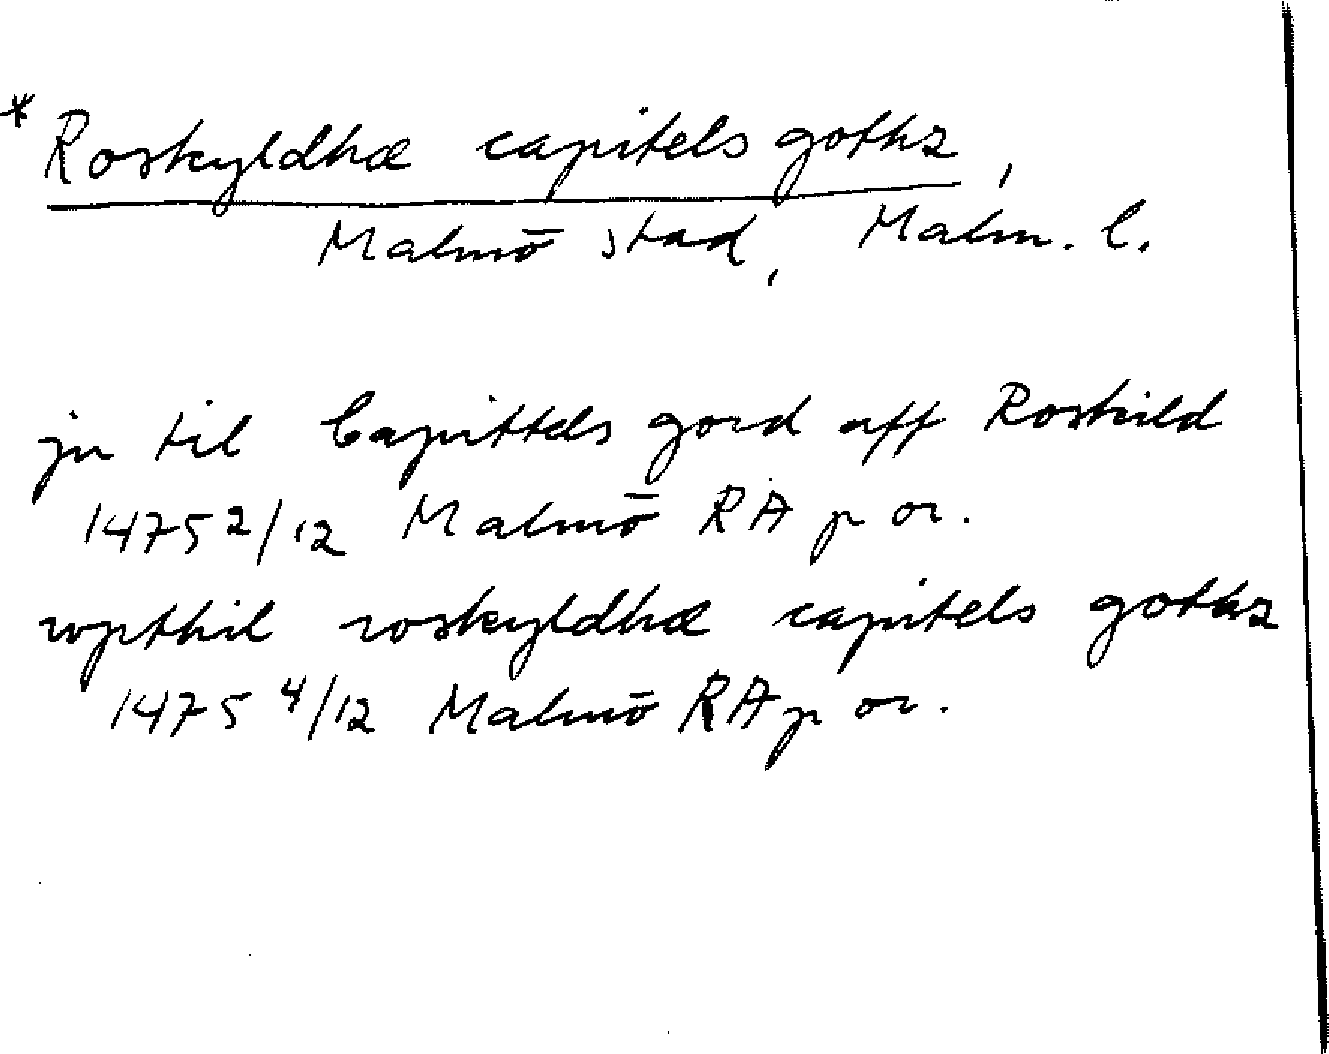 * Roskyldhæ capitels gothz,
Malmö stad, Malm. l.
jn til Capittels gord aff Roskild
1475 2/12 Malmö RA p or.
wpthil roskyldhæ capitels gothz
1475 4/12 Malmö RA p or.